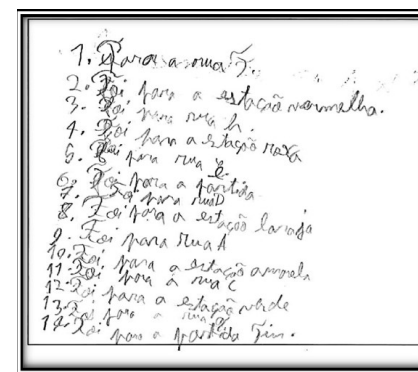 1. Para a rua F.
2. Foi para a estação vermelha.
3. Foi para rua h.
4. Foi para a estação roxa
5. Foi para rua E
6. Foi para a partida
7. Foi para rua D
8. Foi para a estação laranja
9. Foi para rua A
10. Foi para a estação amarela
11. Foi para a rua C
12. Foi para a estação verde
13. Foi para a rua
14. Foi para a partida Fim.